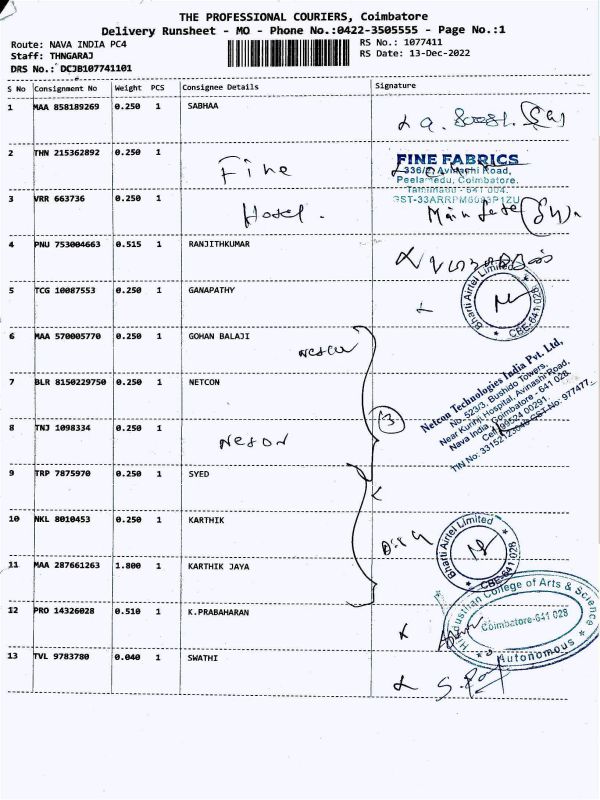 THE PROFESSIONAL COURIERS, Coimbatore
Delivery Runsheet - MO - Phone No.:0422-3505555 - Page No.:1
Route: NAVA INDIA PC4
Staff: THNGARAJ
DRS No.: DCJB107741101
RS No.: 1077411
RS Date: 13-Dec-2022
S No Consignment No Weight PCS Consignee Details Signature
1 MAA 858189269 0.250 1 SABHAA
2 THN 215362892 0.250 1 Fine
FINE FABRICS
336/ Avinashi Road,
Peelamedu, Coimbatore.
Tamilnadu - 641 004.
3 VRR 663736 0.250 1 Hotel.
4 PNU 753004663 0.515 1 RANJITHKUMAR
5 TCG 10087553 0.250 1 GANAPATHY
Bharti Airtel Limited
CBE-641 028
6 MAA 570005770 0.250 1 GOHAN BALAJI
7 BLR 8150229750 0.250 1 NETCON
Netcon Technologies India Pvt. Ltd,
No. 523/3, Bushido Towers,
Near Kurinji Hospital, Avinashi Road,
Nava India, Coimbatore - 641 028.
8 TNJ 1098334 0.250 1
3
9 TRP 7875970 0.250 1 SYED
10 NKL 8010453 0.250 1 KARTHIK
Bharti Airtel Limited
CBE-641 028
11 MAA 287661263 1.800 1 KARTHIK JAYA
12 PRO 14326028 0.510 1 K.PRABAHARAN
Hindusthan College of Arts & Science
Coimbatore-641 028
Autonomous
13 TVL 9783780 0.040 1 SWATHI